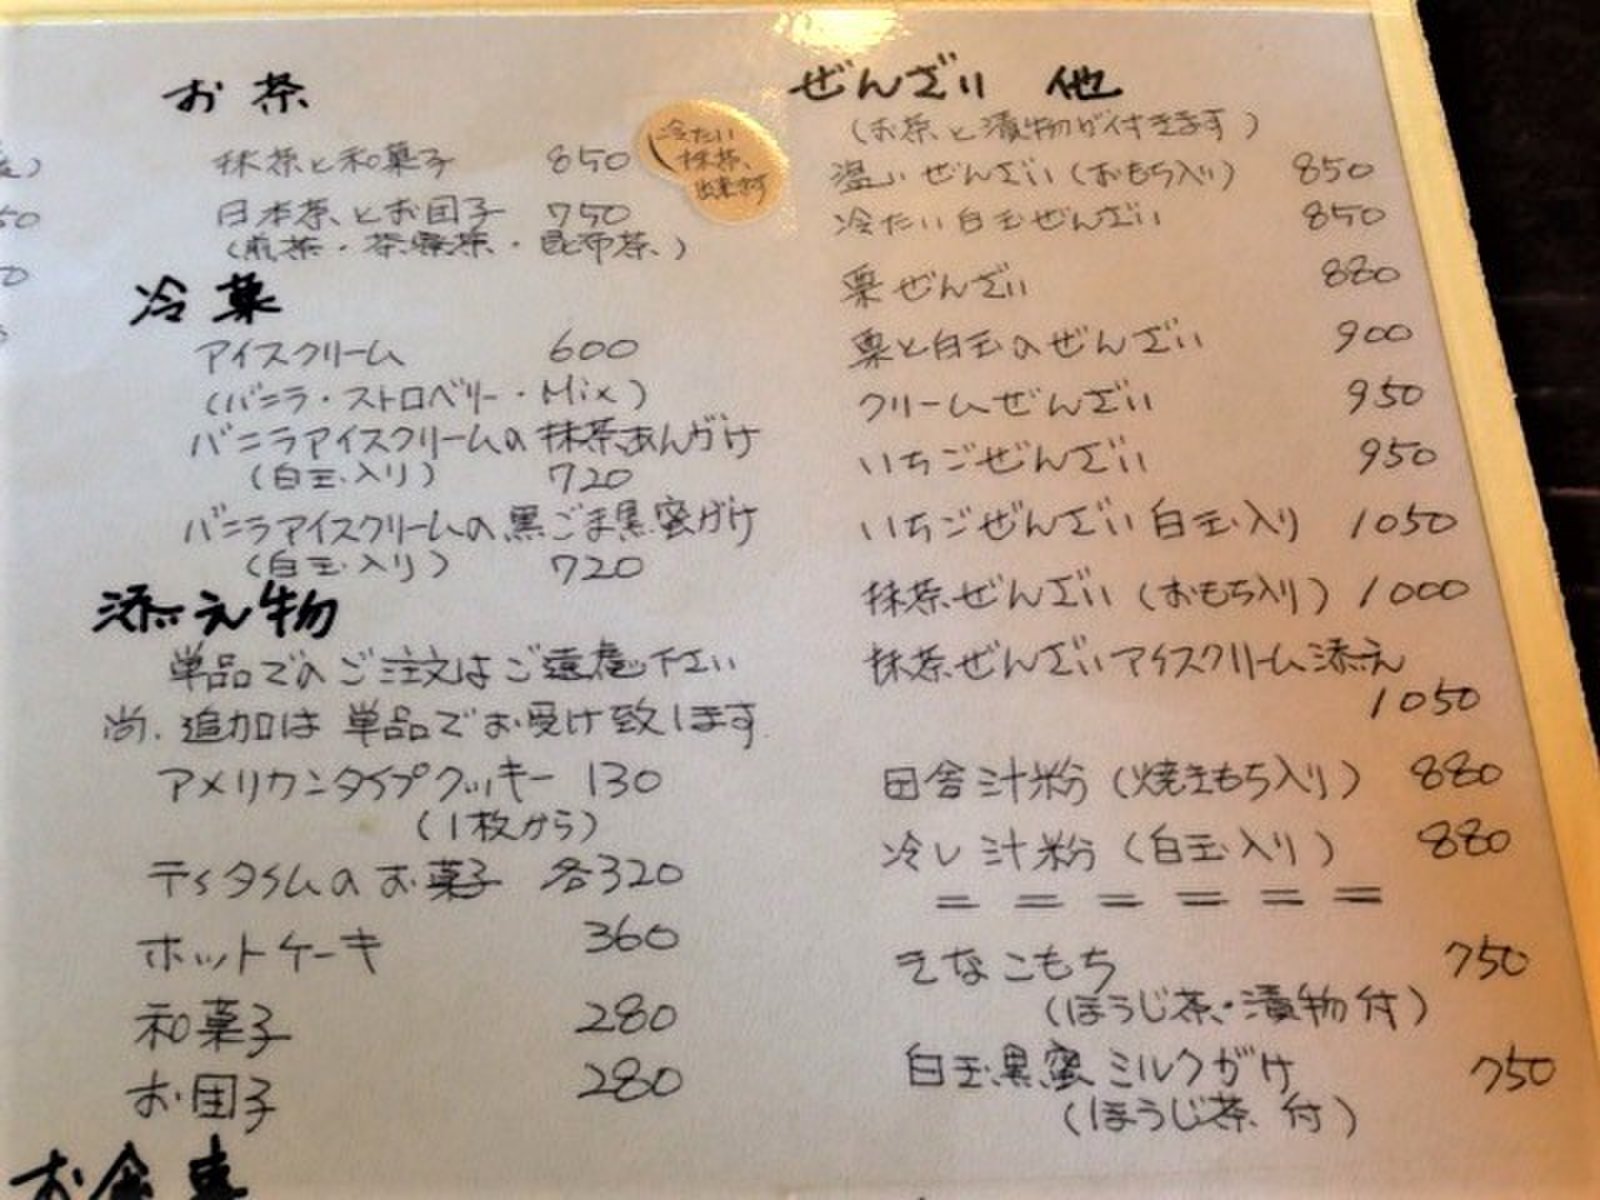 お茶
抹茶と和菓子 850
冷たい
抹茶、
出来ます
日本茶とお団子 750
(煎茶・茶・昆布茶)
冷菓
アイスクリーム 600
(バニラ・ストロベリー・Mix)
バニラアイスクリームの抹茶あんがけ
(白玉入り) 720
バニラアイスクリームの黒ごま黒蜜がけ
(白玉入り) 720
添え物
単品でのご注文はご遠慮下さい
尚、追加は単品でお受け致します
アメリカンタイプクッキー 130
(1枚から)
ティタイムのお菓子 各320
ホットケーキ 360
和菓子 280
お団子 280
お食事
ぜんざい 他
(お茶と漬物が付きます)
温いぜんざい(おもち入り) 850
冷たい白玉ぜんざい 850
栗ぜんざい 880
栗と白玉のぜんざい 900
クリームぜんざい 950
いちごぜんざい 950
いちごぜんざい白玉入り 1050
抹茶ぜんざい(おもち入り) 1000
抹茶ぜんざいアイスクリーム添え
1050
田舎汁粉(焼きもち入り) 880
冷し汁粉(白玉入り) 880
= = = = = =
きなこもち 750
(ほうじ茶・漬物付)
白玉黒蜜ミルクがけ 750
(ほうじ茶付)